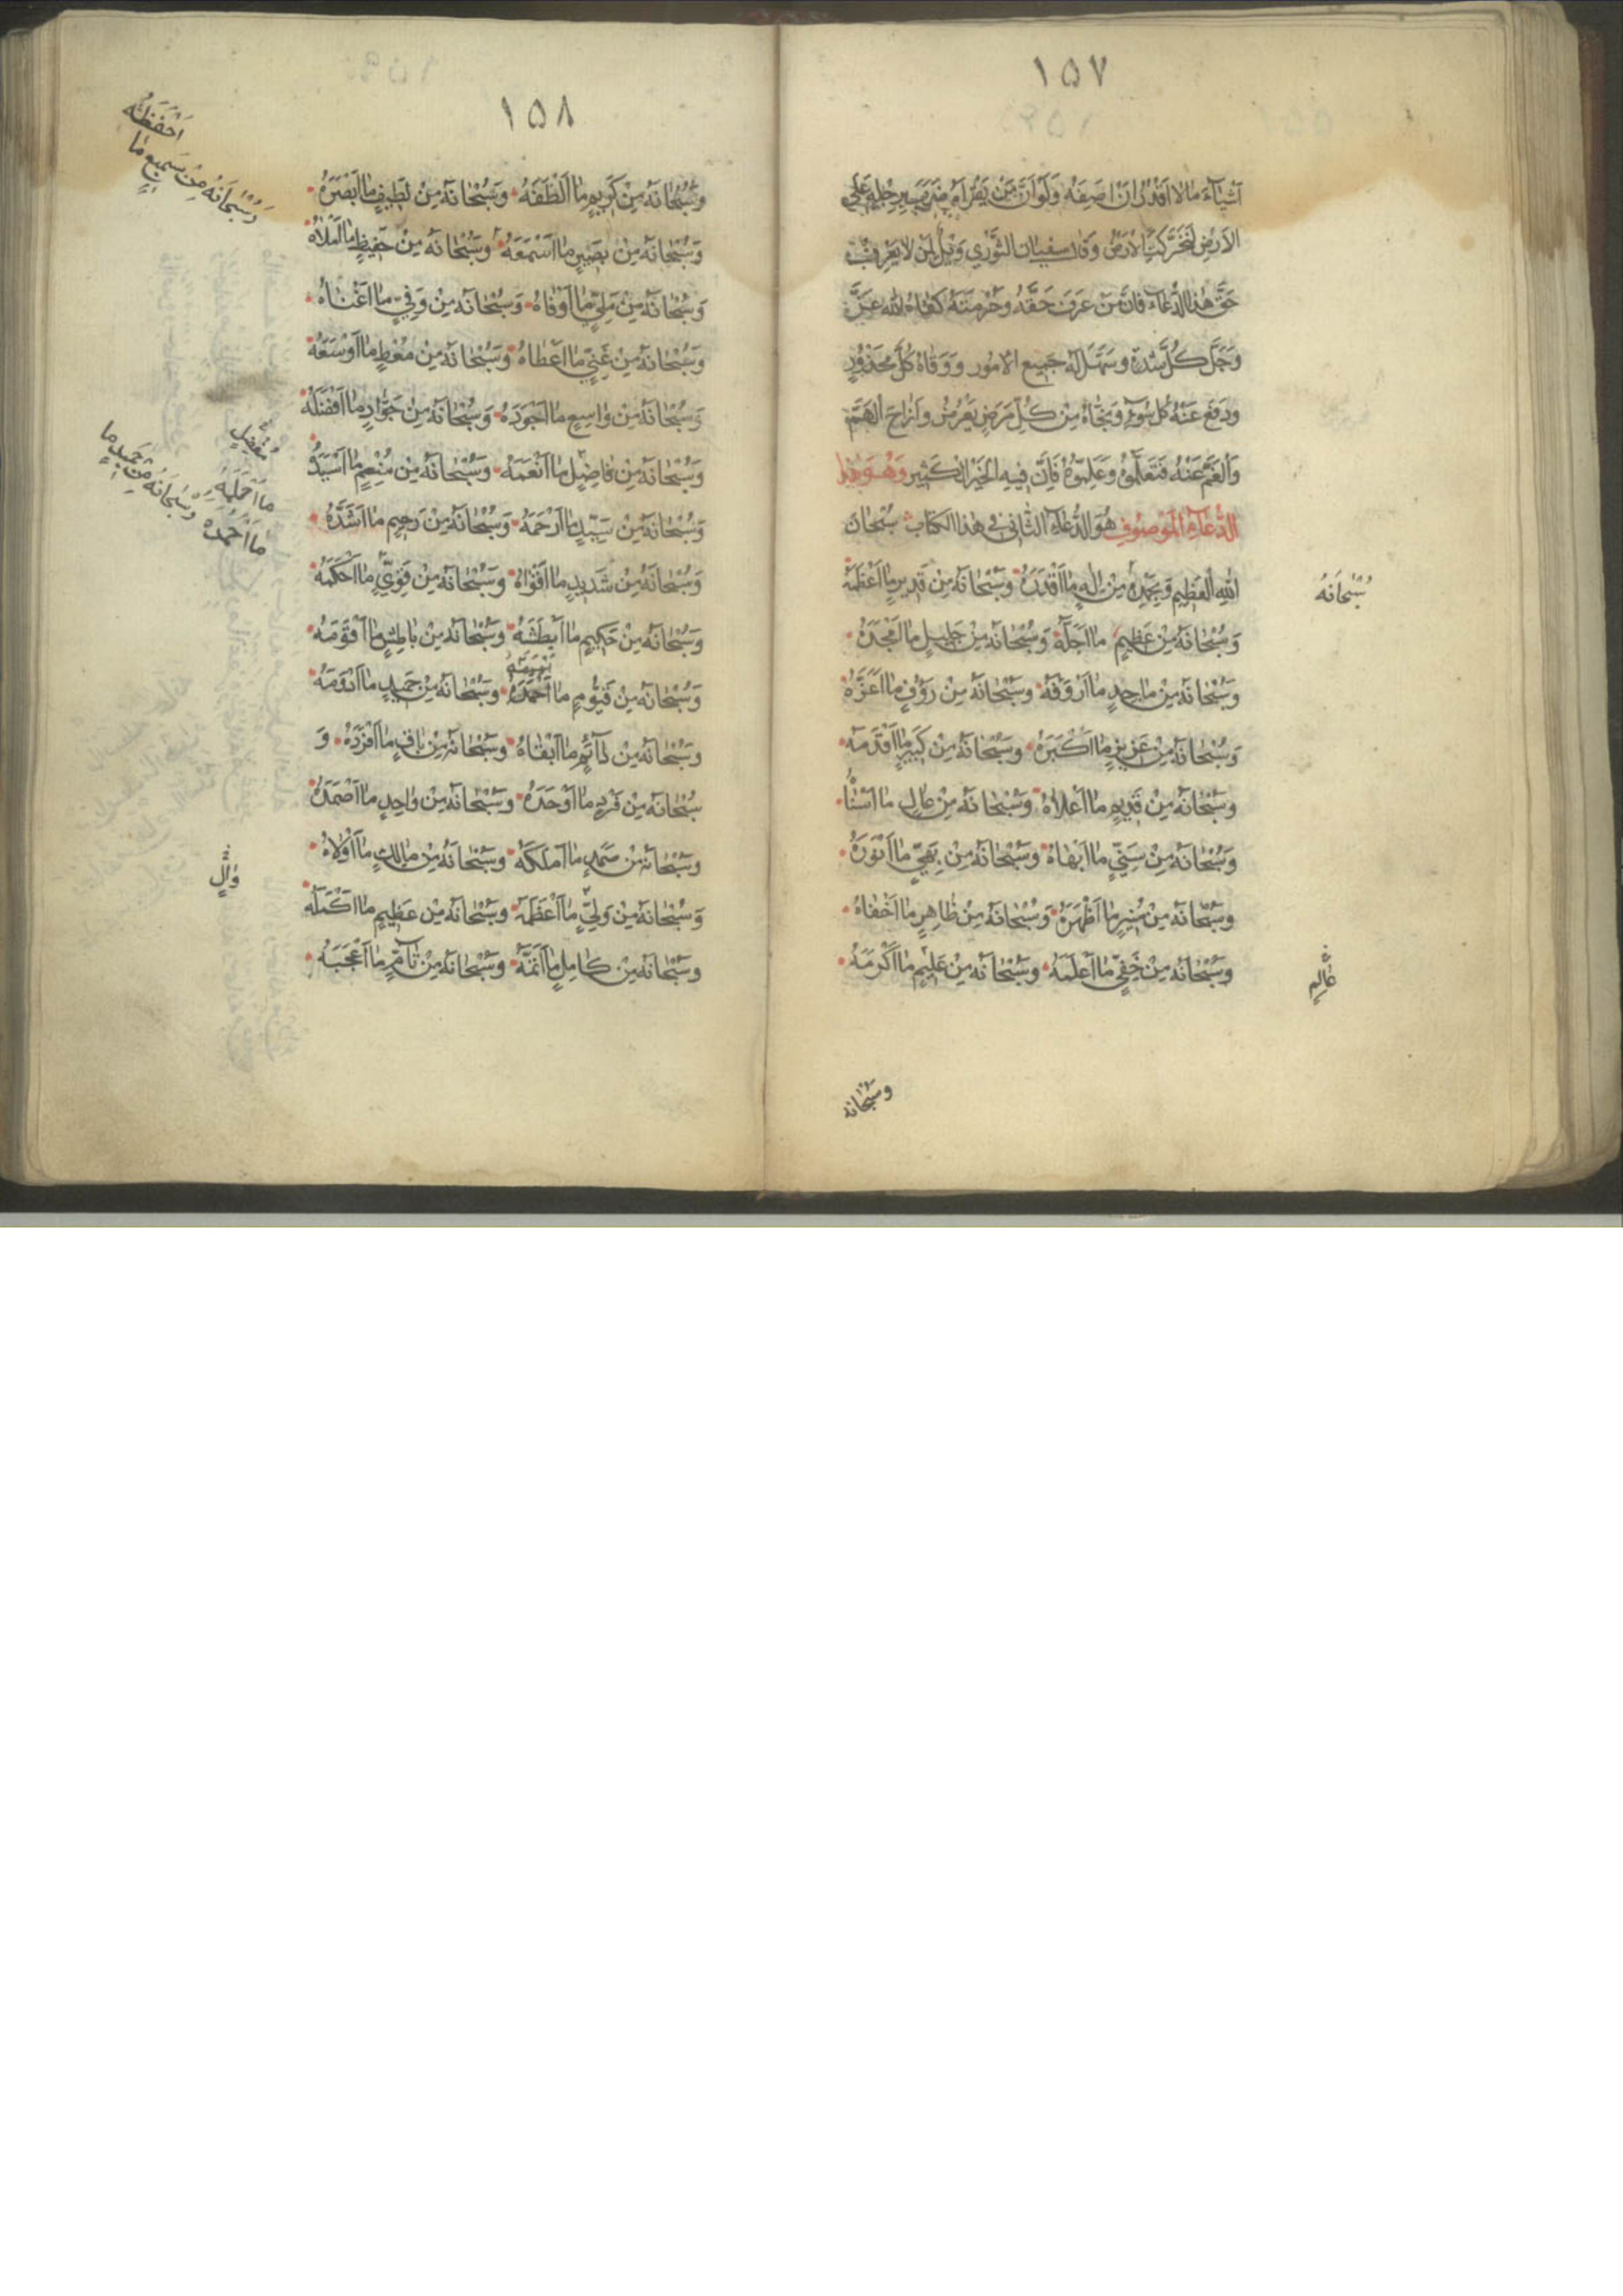 ١٥٧
اَشْيَاءَ مالا اَقْدُرُ اَنْ اَصِفَهُ وَلَوْ اَنَّ مَنْ يَقْرَأُهُ ضَرَبَ بِرِجْلِهِ عَلَى
الاَرْضِ لَتَحَرَّكَتِ الاَرْضُ وَقَالَ سفيان الثَّوْري وَيْلٌ لِمَنْ لا يَعْرِفُ
حَقَّ هٰذا الدُّعَاءِ فَاِنَّ مَنْ عَرَفَ حَقَّهُ وَحُرْمَتَهُ كَفاهُ اللّٰه عَزَّ
وَجَلَّ كُلَّ شِدَّةٍ وَسَهَّلَ لَهُ جَمِيعَ الاُمُورِ وَوَقاهُ كُلَّ مَحْذُورٍ
ودَفَعَ عَنْهُ كُلَّ سُوءٍ وَنَجَّاهُ مِنْ كُلِّ مَرَضٍ يَعْرِضُ وَاَزاحَ الْهَمَّ
وَالْغَمَّ عَنْهُ فَتَعَلَّمُوهُ وَعَلِّمُوهُ فَاِنَّ فِيهِ الْخَيْرَ الْكَثِير وَهُوَ هٰذا
الدُّعَاءُ الْمَوْصُوفُ هُوَ الدُّعَاءُ الثَّانِى فِى هٰذا الكتاب سُبْحانَ
اللّٰهِ الْعَظِيمِ وَبِحَمْدِهِ مِنْ اِلٰهٍ ما اَقْدَرَهُ وَسُبْحانَهُ مِنْ قَدِيرٍ ما اَعْظَمَهُ
سُبْحَانَهُ
وَسُبْحانَهُ مِنْ عَظِيمٍ ما اَجَلَّهُ وَسُبْحانَهُ مِنْ جَلِيلٍ ما اَمْجَدَهُ
وَسُبْحانَهُ مِنْ ماجِدٍ ما اَرْؤَفَهُ وَسُبْحانَهُ مِنْ رَؤُفٍ ما اَعَزَّهُ
وَسُبْحانَهُ مِنْ عَزِيزٍ ما اَكْبَرَهُ وَسُبْحانَهُ مِنْ كَبِيرٍ ما اَقْدَمَهُ
وَسُبْحانَهُ مِنْ قَدِيمٍ ما اَعْلاهُ وَسُبْحانَهُ مِنْ عالٍ ما اَسْنٰاهُ
وَسُبْحانَهُ مِنْ سَنِيٍّ ما اَبْهاهُ وَسُبْحانَهُ مِنْ بَهِيٍّ ما اَنْوَرَهُ
وَسُبْحانَهُ مِنْ مُنِيرٍ ما اَظْهَرَهُ وَسُبْحانَهُ مِنْ ظاهِرٍ ما اَخْفاهُ
وَسُبْحانَهُ مِنْ خَفِيٍّ ما اَعْلَمَهُ وَسُبْحانَهُ مِنْ عَلِيمٍ ما اَكْرَمَهُ
عٰالِمٍ
وسُبْحانه
١٥٨
وَسُبْحانَهُ مِنْ كَرِيمٍ ما اَلْطَفَهُ وَسُبْحانَهُ مِنْ لَطِيفٍ ما اَبْصَرَهُ
وَسُبْحَانَهُ مِنْ سَمِيعٍ مٰا
اَحْفَظَهُ
وَسُبْحانَهُ مِنْ بَصِيرٍ ما اَسْمَعَهُ وَسُبْحانَهُ مِنْ حَفِيظٍ ما اَمْلاَهُ
وَسُبْحانَهُ مِنْ مَلِيٍّ ما اَوْفاهُ وَسُبْحانَهُ مِنْ وَفِيٍّ ما اَغْناهُ
وَسُبْحانَهُ مِنْ غَنِيٍّ ما اَعْطاهُ وَسُبْحانَهُ مِنْ مُعْطٍ ما اَوْسَعَهُ
وَسُبْحانَهُ مِنْ واسِعٍ ما اَجْوَدَهُ وَسُبْحانَهُ مِنْ جَوادٍ ما اَفْضَلَهُ
وَسُبْحانَهُ مِنْ فاضِلٍ ما اَنْعَمَهُ وَسُبْحانَهُ مِنْ مُنْعِمٍ ما اَسْيَدَهُ
مُفْضِلٍ
وَسُبْحانَهُ مِنْ سَيِّدٍ ما اَرْحَمَهُ وَسُبْحانَهُ مِنْ رَحِيمٍ ما اَشَدَّهُ
وَسُبْحانَهُ مِنْ شَدِيدٍ ما اَقْواهُ وَسُبْحانَهُ مِنْ قَوِيٍّ ما اَحْكَمَهُ
ما اَحْمَدَهُ وَسُبْحانَهُ مِنْ حَمِيدٍ ما
وَسُبْحانَهُ مِنْ حَكِيمٍ ما اَبْطَشَهُ وَسُبْحانَهُ مِنْ باطِشٍ ما اَقْوَمَهُ
وَسُبْحانَهُ مِنْ قَيُّومٍ ما اَحْمَدَهُ وَسُبْحانَهُ مِنْ حَمِيدٍ ما اَدْوَمَهُ
وَسُبْحانَهُ مِنْ دآئِمٍ ما اَبْقاهُ وَسُبْحانَهُ مِنْ باقٍ ما اَفْرَدَهُ وَ
سُبْحانَهُ مِنْ فَرْدٍ ما اَوْحَدَهُ وَسُبْحانَهُ مِنْ واحِدٍ ما اَصْمَدَهُ
وَسُبْحانَهُ مِنْ صَمَدٍ ما اَمْلَكَهُ وَسُبْحانَهُ مِنْ مالِكٍ ما اَوْلاهُ
وٰالٍ
وَسُبْحانَهُ مِنْ وَلِيٍّ ما اَعْظَمَهُ وَسُبْحانَهُ مِنْ عَظِيمٍ ما اَكْمَلَهُ
وَسُبْحانَهُ مِنْ كامِلٍ ما اَتَمَّهُ وَسُبْحانَهُ مِنْ تآمٍّ ما اَعْجَبَهُ